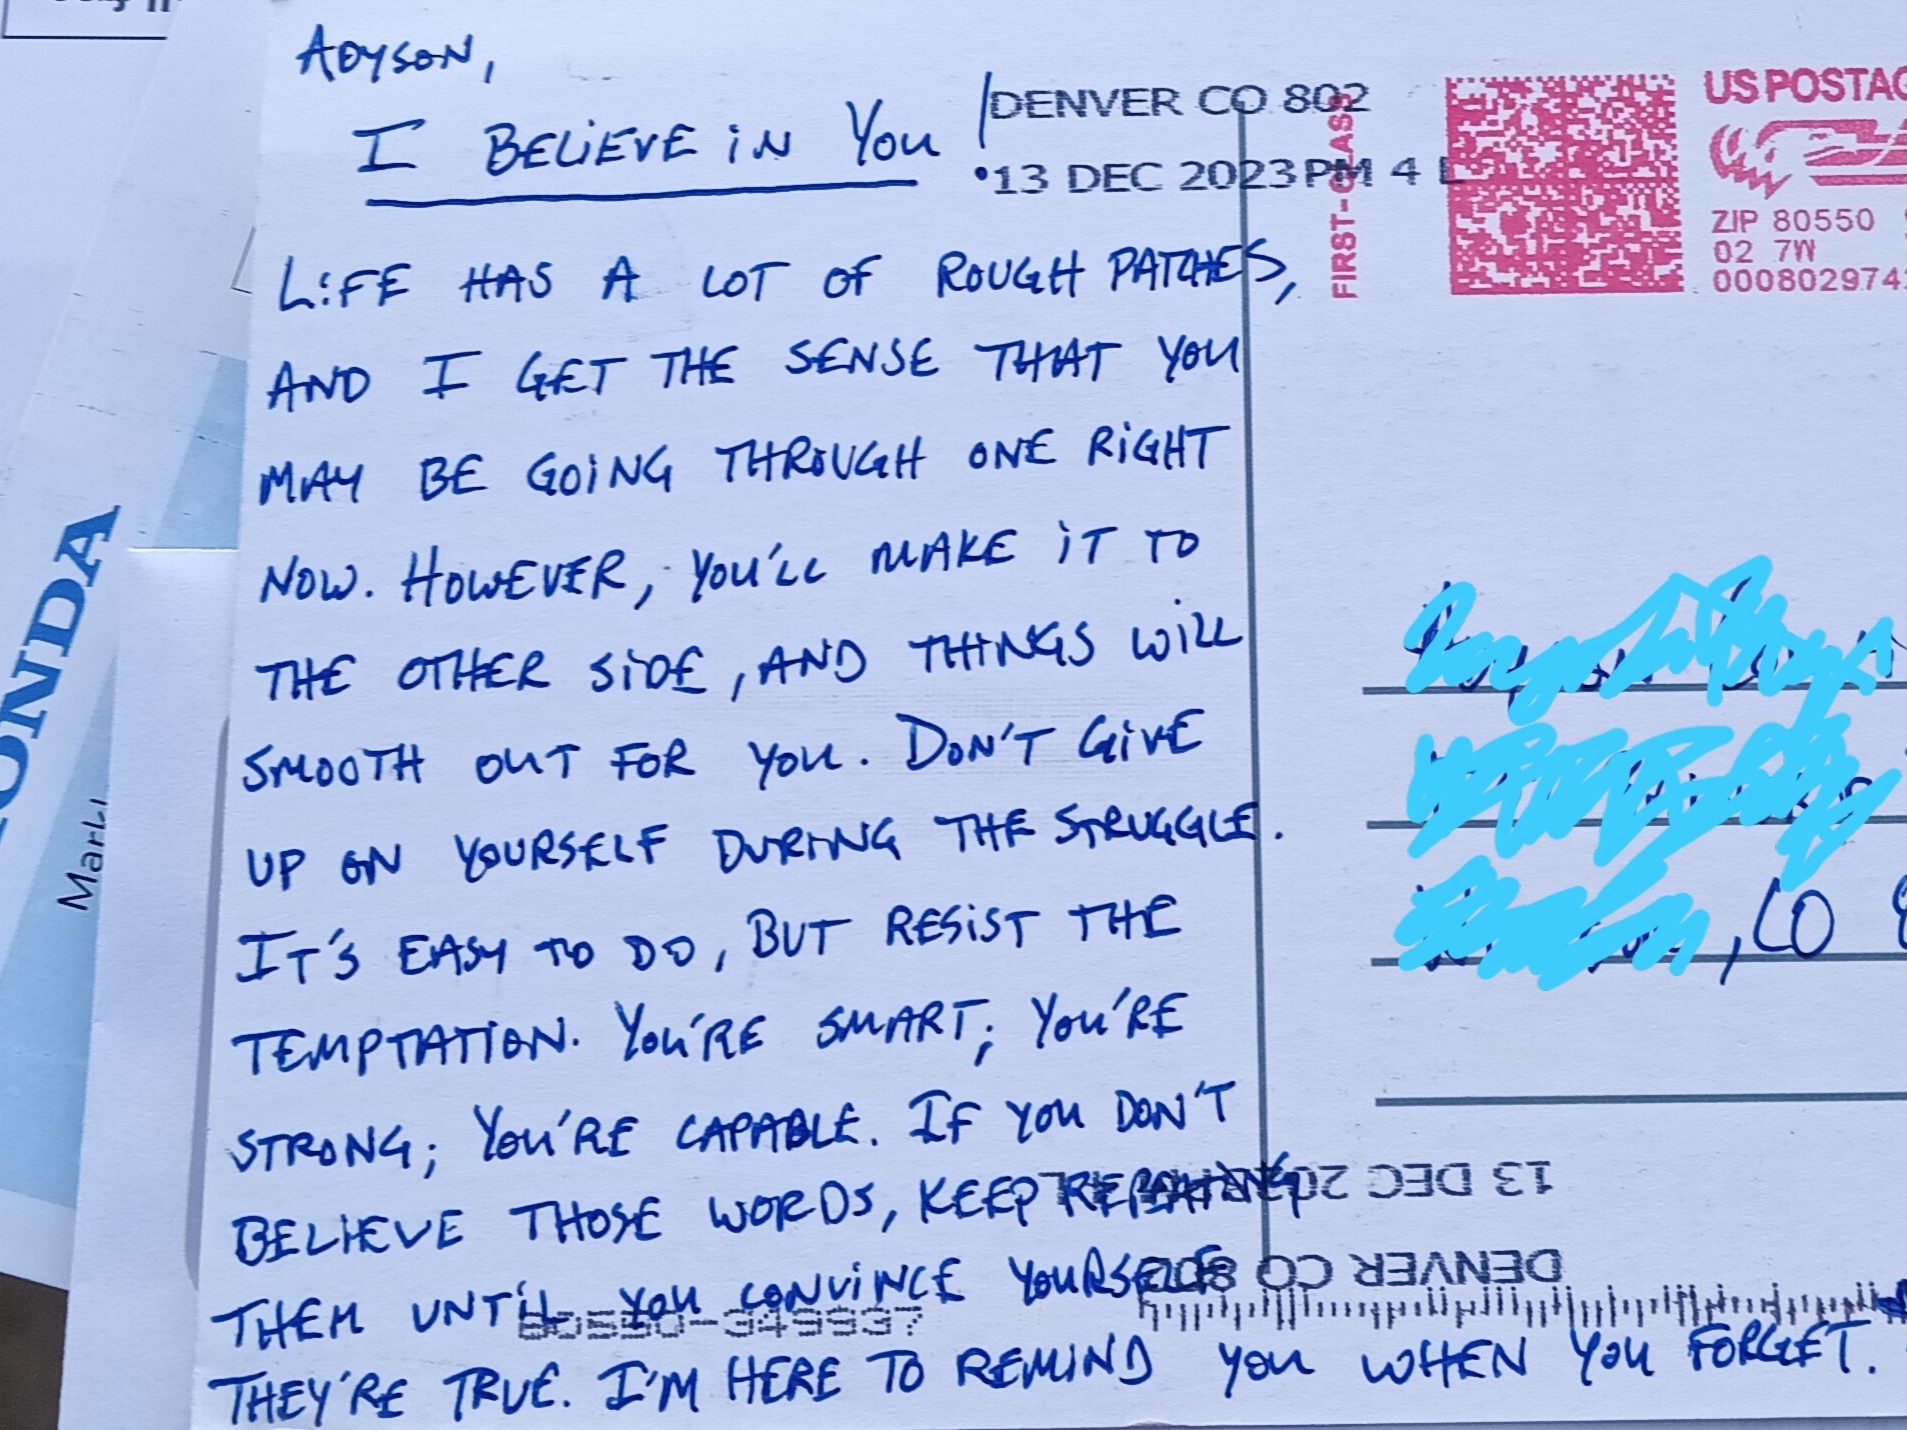 ADYSON,
I BELIEVE IN YOU
DENVER CO 802
13 DEC 2023 PM 4 L
FIRST-CLASS
US POSTAG
ZIP 80550
02 7W
000802974
LIFE HAS A LOT OF ROUGH PATCHES,
AND I GET THE SENSE THAT YOU
MAY BE GOING THROUGH ONE RIGHT
NOW. HOWEVER, YOU'LL MAKE IT TO
THE OTHER SIDE, AND THINGS WILL
SMOOTH OUT FOR YOU. DON'T GIVE
UP ON YOURSELF DURING THE STRUGGLE.
IT'S EASY TO DO, BUT RESIST THE
TEMPTATION. YOU'RE SMART; YOU'RE
STRONG; YOU'RE CAPABLE. IF YOU DON'T
BELIEVE THOSE WORDS, KEEP REPEATING
THEM UNTIL YOU CONVINCE YOURSELF
THEY'RE TRUE. I'M HERE TO REMIND YOU WHEN YOU FORGET.
, CO
13 DEC 2023 PM 4 L
DENVER CO 802
HONDA